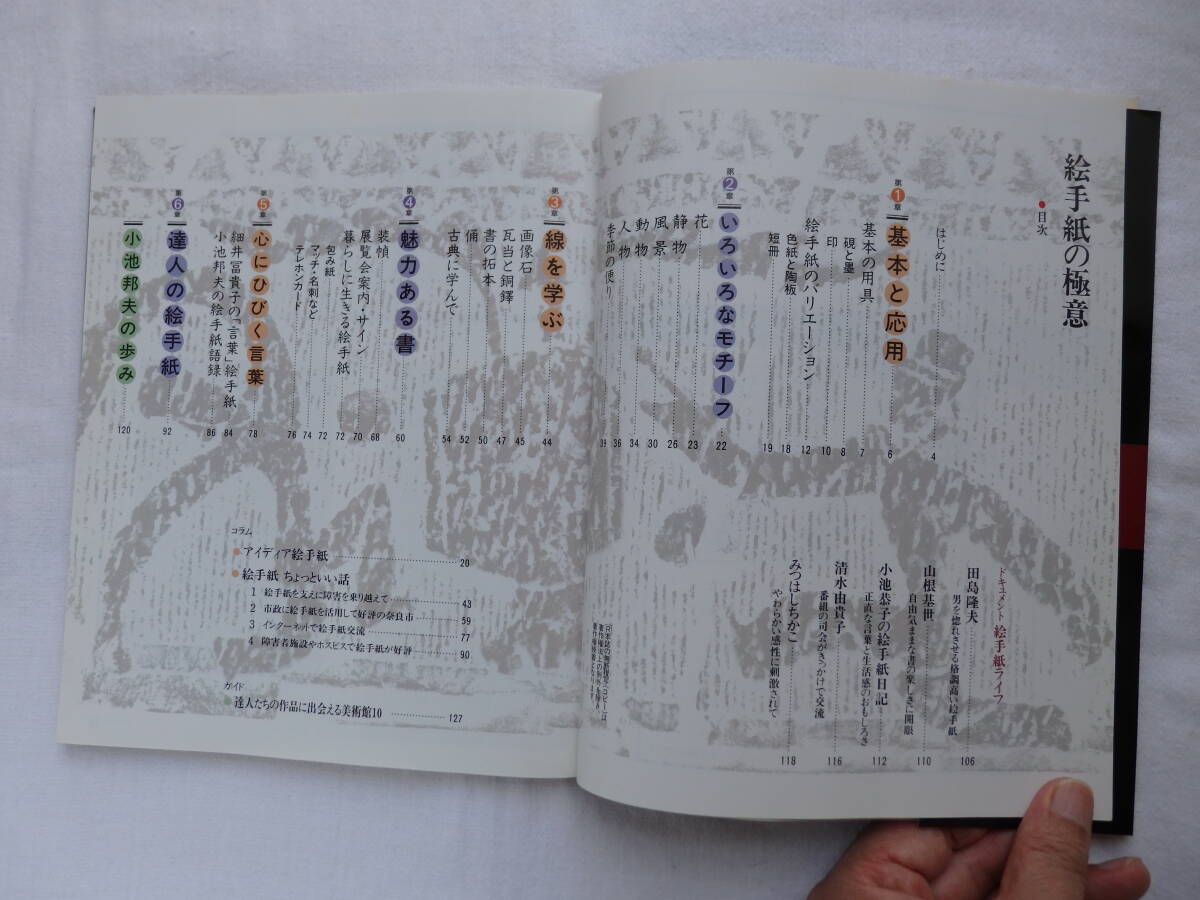 絵手紙の極意
●目次
はじめに 4
第1章 基本と応用 6
基本の用具 7
硯と墨 8
印 10
絵手紙のバリエーション 12
色紙と陶板 18
短冊 19
第2章 いろいろなモチーフ 22
花 23
静物 26
風景 30
動物 34
人物 36
季節の便り 39
ドキュメント 絵手紙ライフ
田島隆夫
男を惚れさせる格調高い絵手紙 106
山根基世
自由気ままな書の楽しさに開眼 110
小池恭子の絵手紙日記
正直な言葉と生活感のおもしろさ 112
清水由貴子
番組の司会がきっかけで交流 116
みつはしちかこ
やわらかい感性に刺激されて 118
第3章 線を学ぶ 44
画像石 45
瓦当と銅鐸 47
書の拓本 50
俑 52
古典に学んで 54
第4章 魅力ある書 60
装幀 68
展覧会案内・サイン 70
暮らしに生きる絵手紙 72
包み紙 72
マッチ・名刺など 74
テレホンカード 76
第5章 心にひびく言葉 78
細井冨貴子の「言葉」絵手紙 84
小池邦夫の絵手紙語録 86
第6章 達人の絵手紙 92
小池邦夫の歩み 120
コラム
●アイディア絵手紙 20
●絵手紙 ちょっといい話
1 絵手紙を支えに障害を乗り越えて 43
2 市政に絵手紙を活用して好評の奈良市 59
3 インターネットで絵手紙交流 77
4 障害者施設やホスピスで絵手紙が好評 90
ガイド
●達人たちの作品に出会える美術館10 127